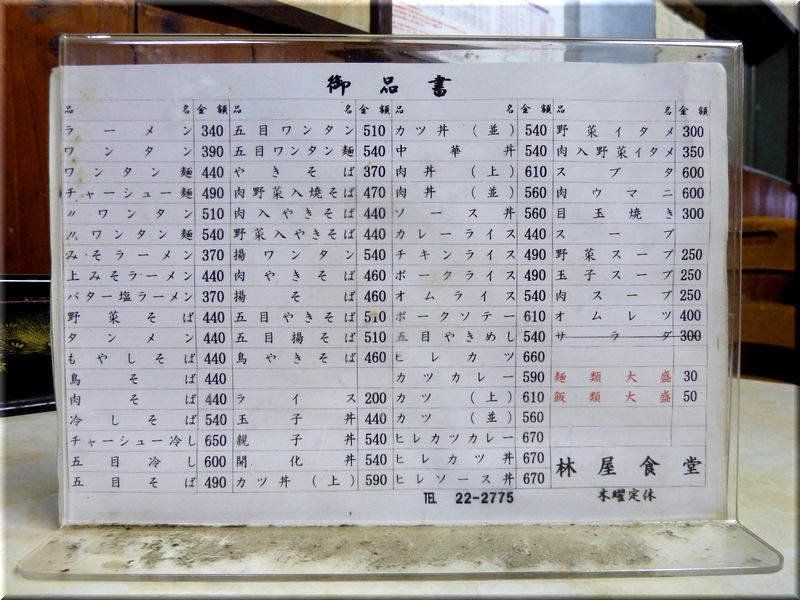 御品書
品名 金額 品名 金額 品名 金額 品名 金額
ラーメン 340 五目ワンタン 510 カツ丼（並） 540 野菜イタメ 300
ワンタン 390 五目ワンタン麺 540 中華丼 540 肉入野菜イタメ 350
ワンタン麺 440 やきそば 370 肉丼（上） 610 スブタ 600
チャーシュー麺 490 肉野菜入焼そば 470 肉丼（並） 560 肉ウマニ 600
〃ワンタン 510 肉入やきそば 440 ソース丼 560 目玉焼き 300
〃ワンタン麺 540 野菜入やきそば 440 カレーライス 440 スープ
みそラーメン 370 揚ワンタン 540 チキンライス 490 野菜スープ 250
上みそラーメン 440 肉やきそば 460 ポークライス 490 玉子スープ 250
バター塩ラーメン 370 揚そば 460 オムライス 540 肉スープ 250
野菜そば 440 五目やきそば 510 ポークソテー 610 オムレツ 400
タンメン 440 五目揚そば 510 五目やきめし 540 サラダ 300
もやしそば 440 鳥やきそば 460 ヒレカツ 660
鳥そば 440 カツカレー 590 麺類大盛 30
肉そば 440 ライス 200 カツ（上） 610 飯類大盛 50
冷しそば 540 玉子丼 440 カツ（並） 560
チャーシュー冷し 650 親子丼 540 ヒレカツカレー 670
五目冷し 600 開化丼 540 ヒレカツ丼 670 林屋食堂
五目そば 490 カツ丼（上） 590 ヒレソース丼 670
TEL 22-2775 木曜定休